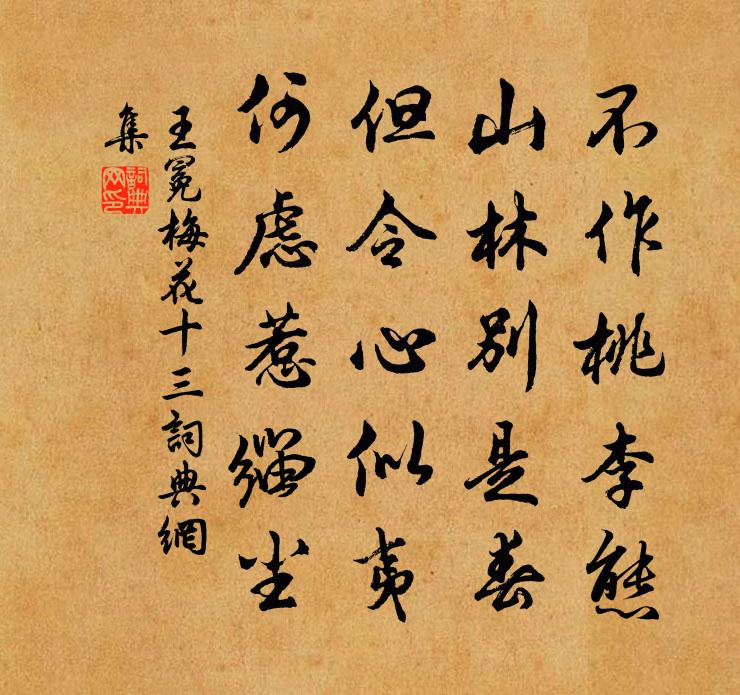 不作桃李態
山林別是春
但令心似夷
何慮惹緇尘
王冕梅花十三詞典網
集
詞典网印